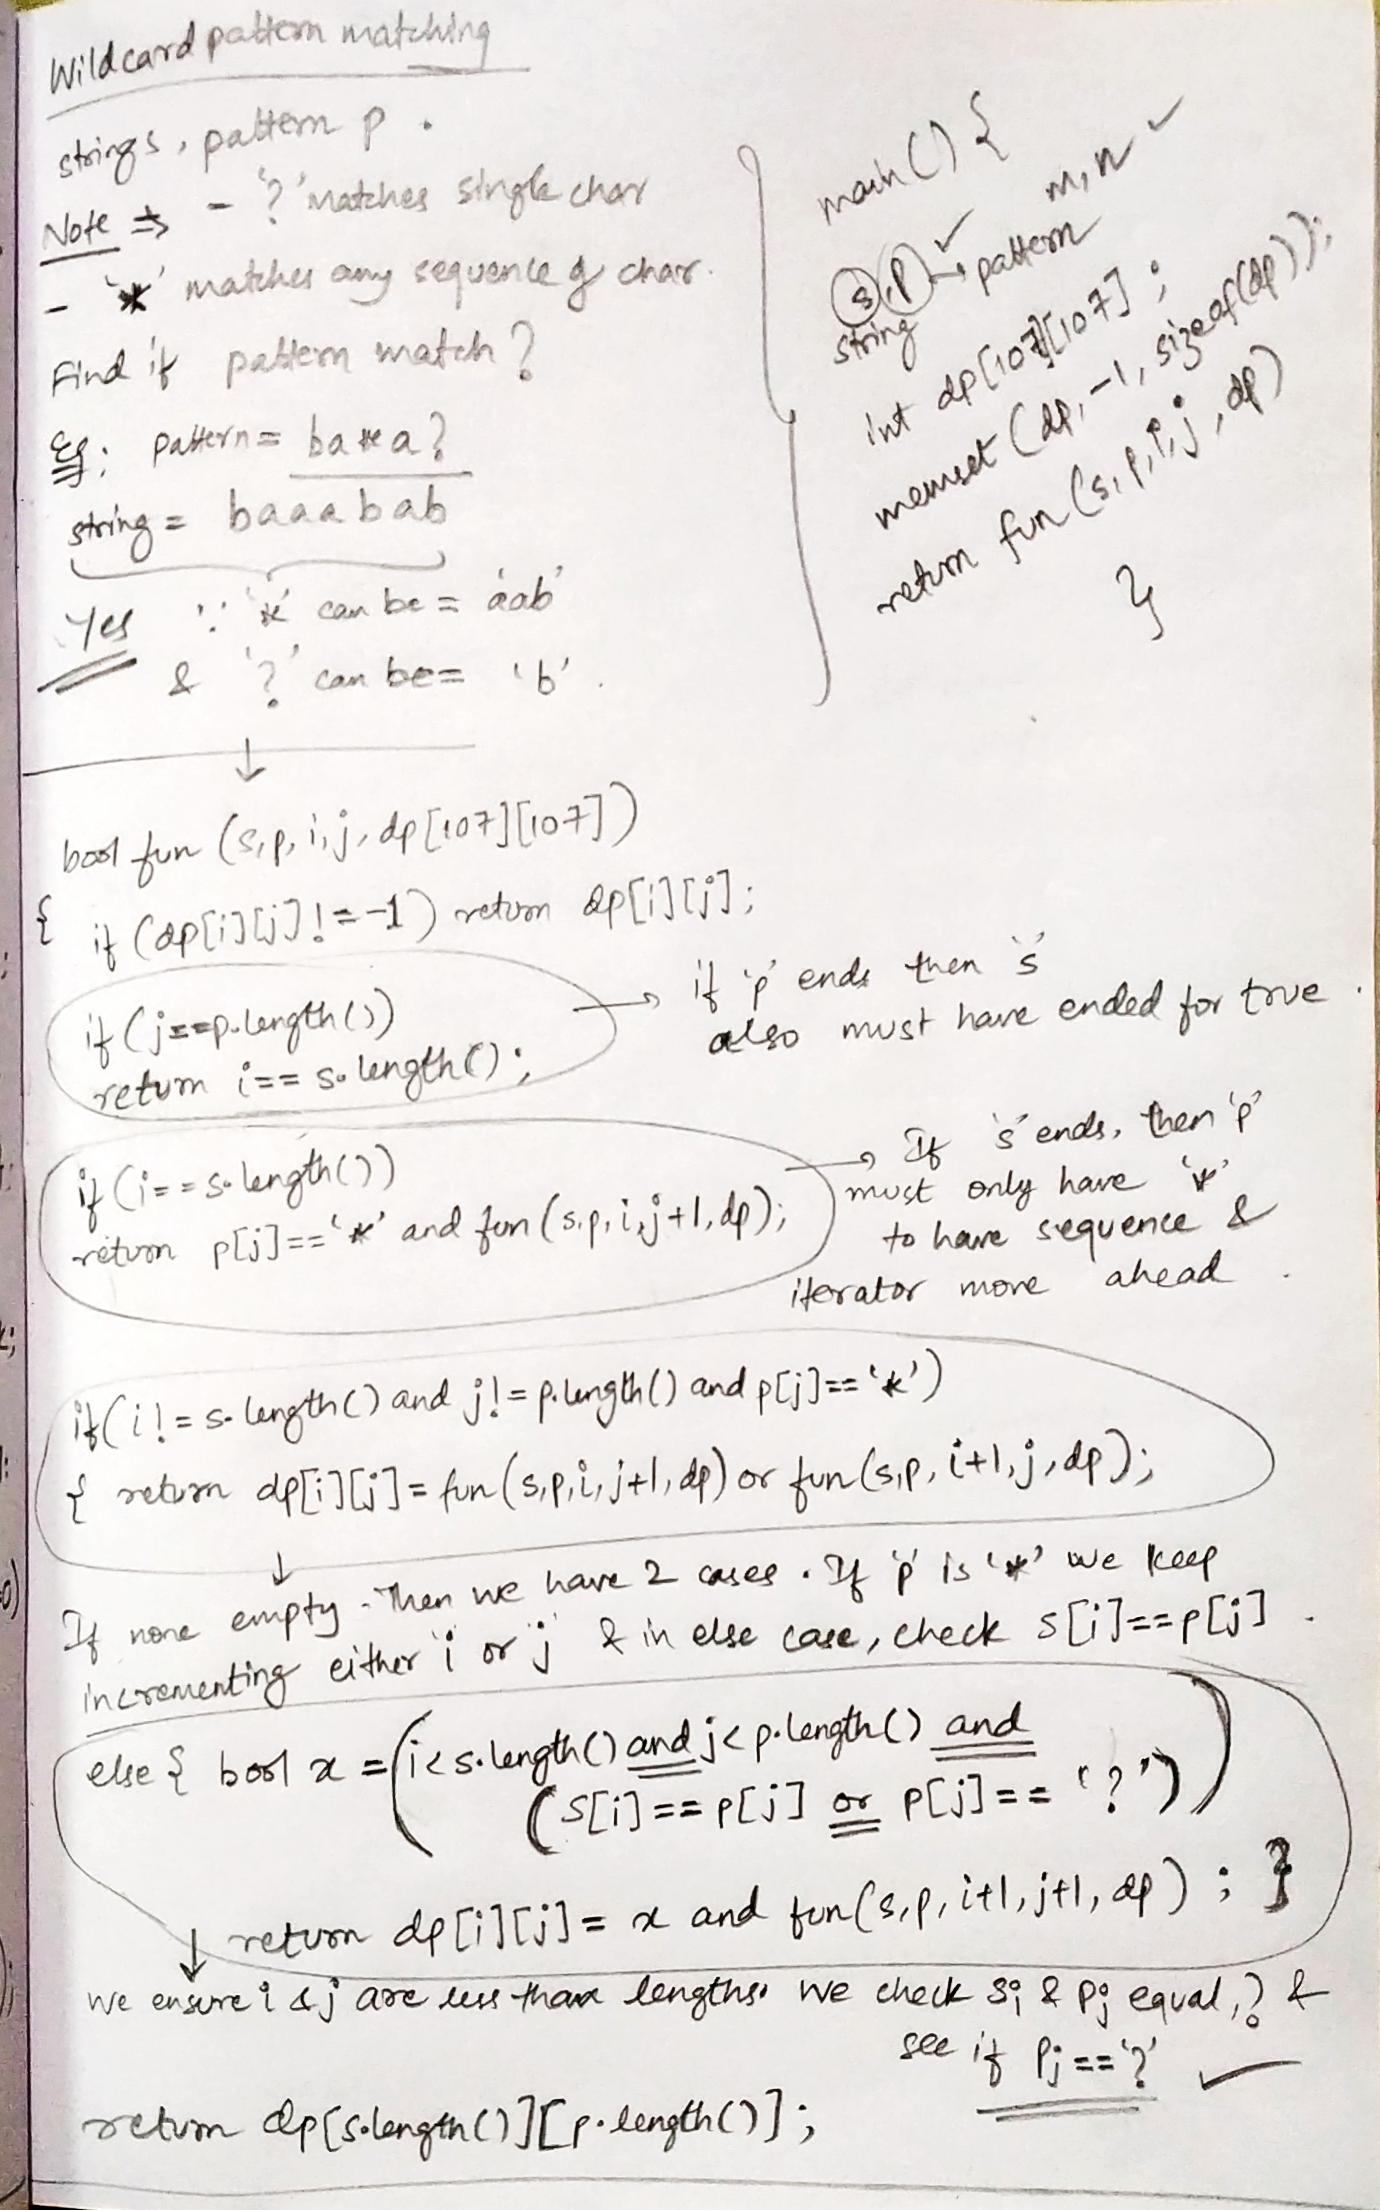 Wildcard pattern matching
string s, pattern p.
Note ⇒ - '?' matches single char
- '*' matches any sequence of char.
Find if pattern match?
Eg: pattern = ba*a?
string = baaabab
Yes ∵ '*' can be = 'aab'
& '?' can be = 'b'.
main() {
m, n ✓
s, p ✓ → pattern
string
int dp[107][107];
memset(dp, -1, sizeof(dp));
return fun(s, p, i, j, dp)
}
bool fun (s, p, i, j, dp[107][107])
{ if (dp[i][j] != -1) return dp[i][j];
if (j==p.length())
return i== s.length();
→ if 'p' ends then 's'
also must have ended for true.
if (i==s.length())
return p[j]=='*' and fun(s,p,i,j+1,dp);
→ If 's' ends, then 'p'
must only have '*'
to have sequence &
iterator move ahead.
if(i!=s.length() and j!=p.length() and p[j]=='*')
{ return dp[i][j]= fun(s,p,i,j+1,dp) or fun(s,p,i+1,j,dp);
If none empty. Then we have 2 cases. If 'p' is '*' we keep
incrementing either 'i' or 'j' & in else case, check s[i]==p[j].
else { bool x = (i<s.length() and j<p.length() and
(s[i]==p[j] or p[j]=='?'))
return dp[i][j]= x and fun(s,p,i+1,j+1,dp); }
we ensure i & j are less than lengths. We check si & pj equal,? &
see if Pj=='?' ✓
return dp[s.length()][p.length()];